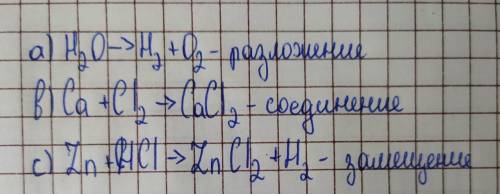 а) H₂O → H₂ + O₂ - разложение
в) Ca + Cl₂ → CaCl₂ - соединение
с) Zn + HCl → ZnCl₂ + H₂ - замещение